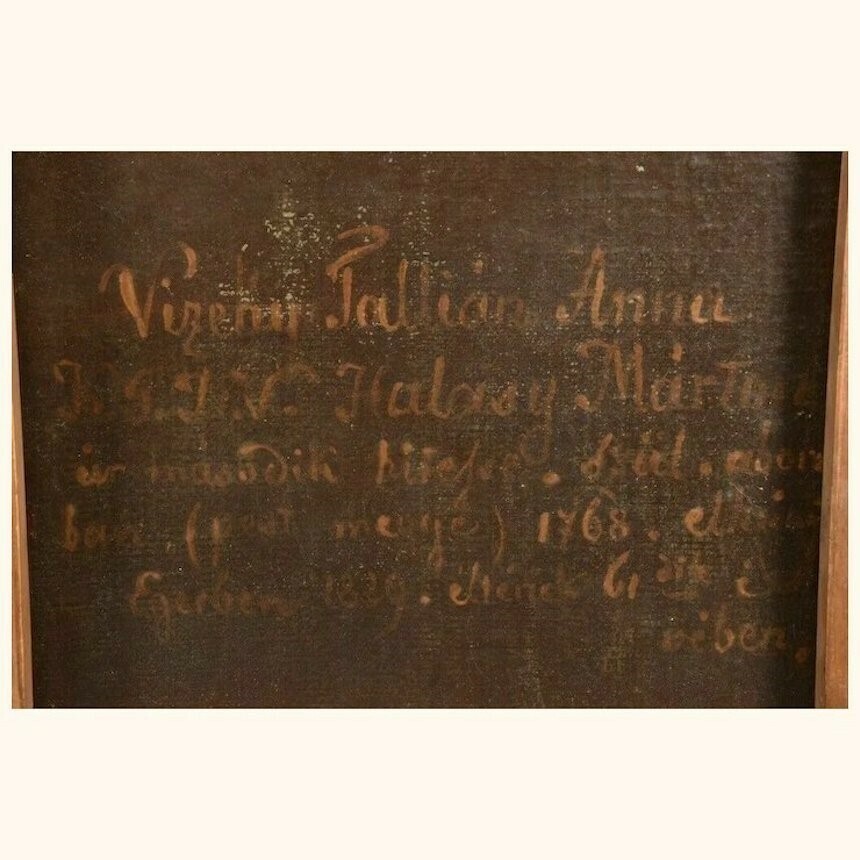 Vizeky Tallián Anna
Halásy Márton
úr masodik hitese. Szül. abon
ban (pest megye) 1768.
Egerben 1829. életének 61 dik
vében.